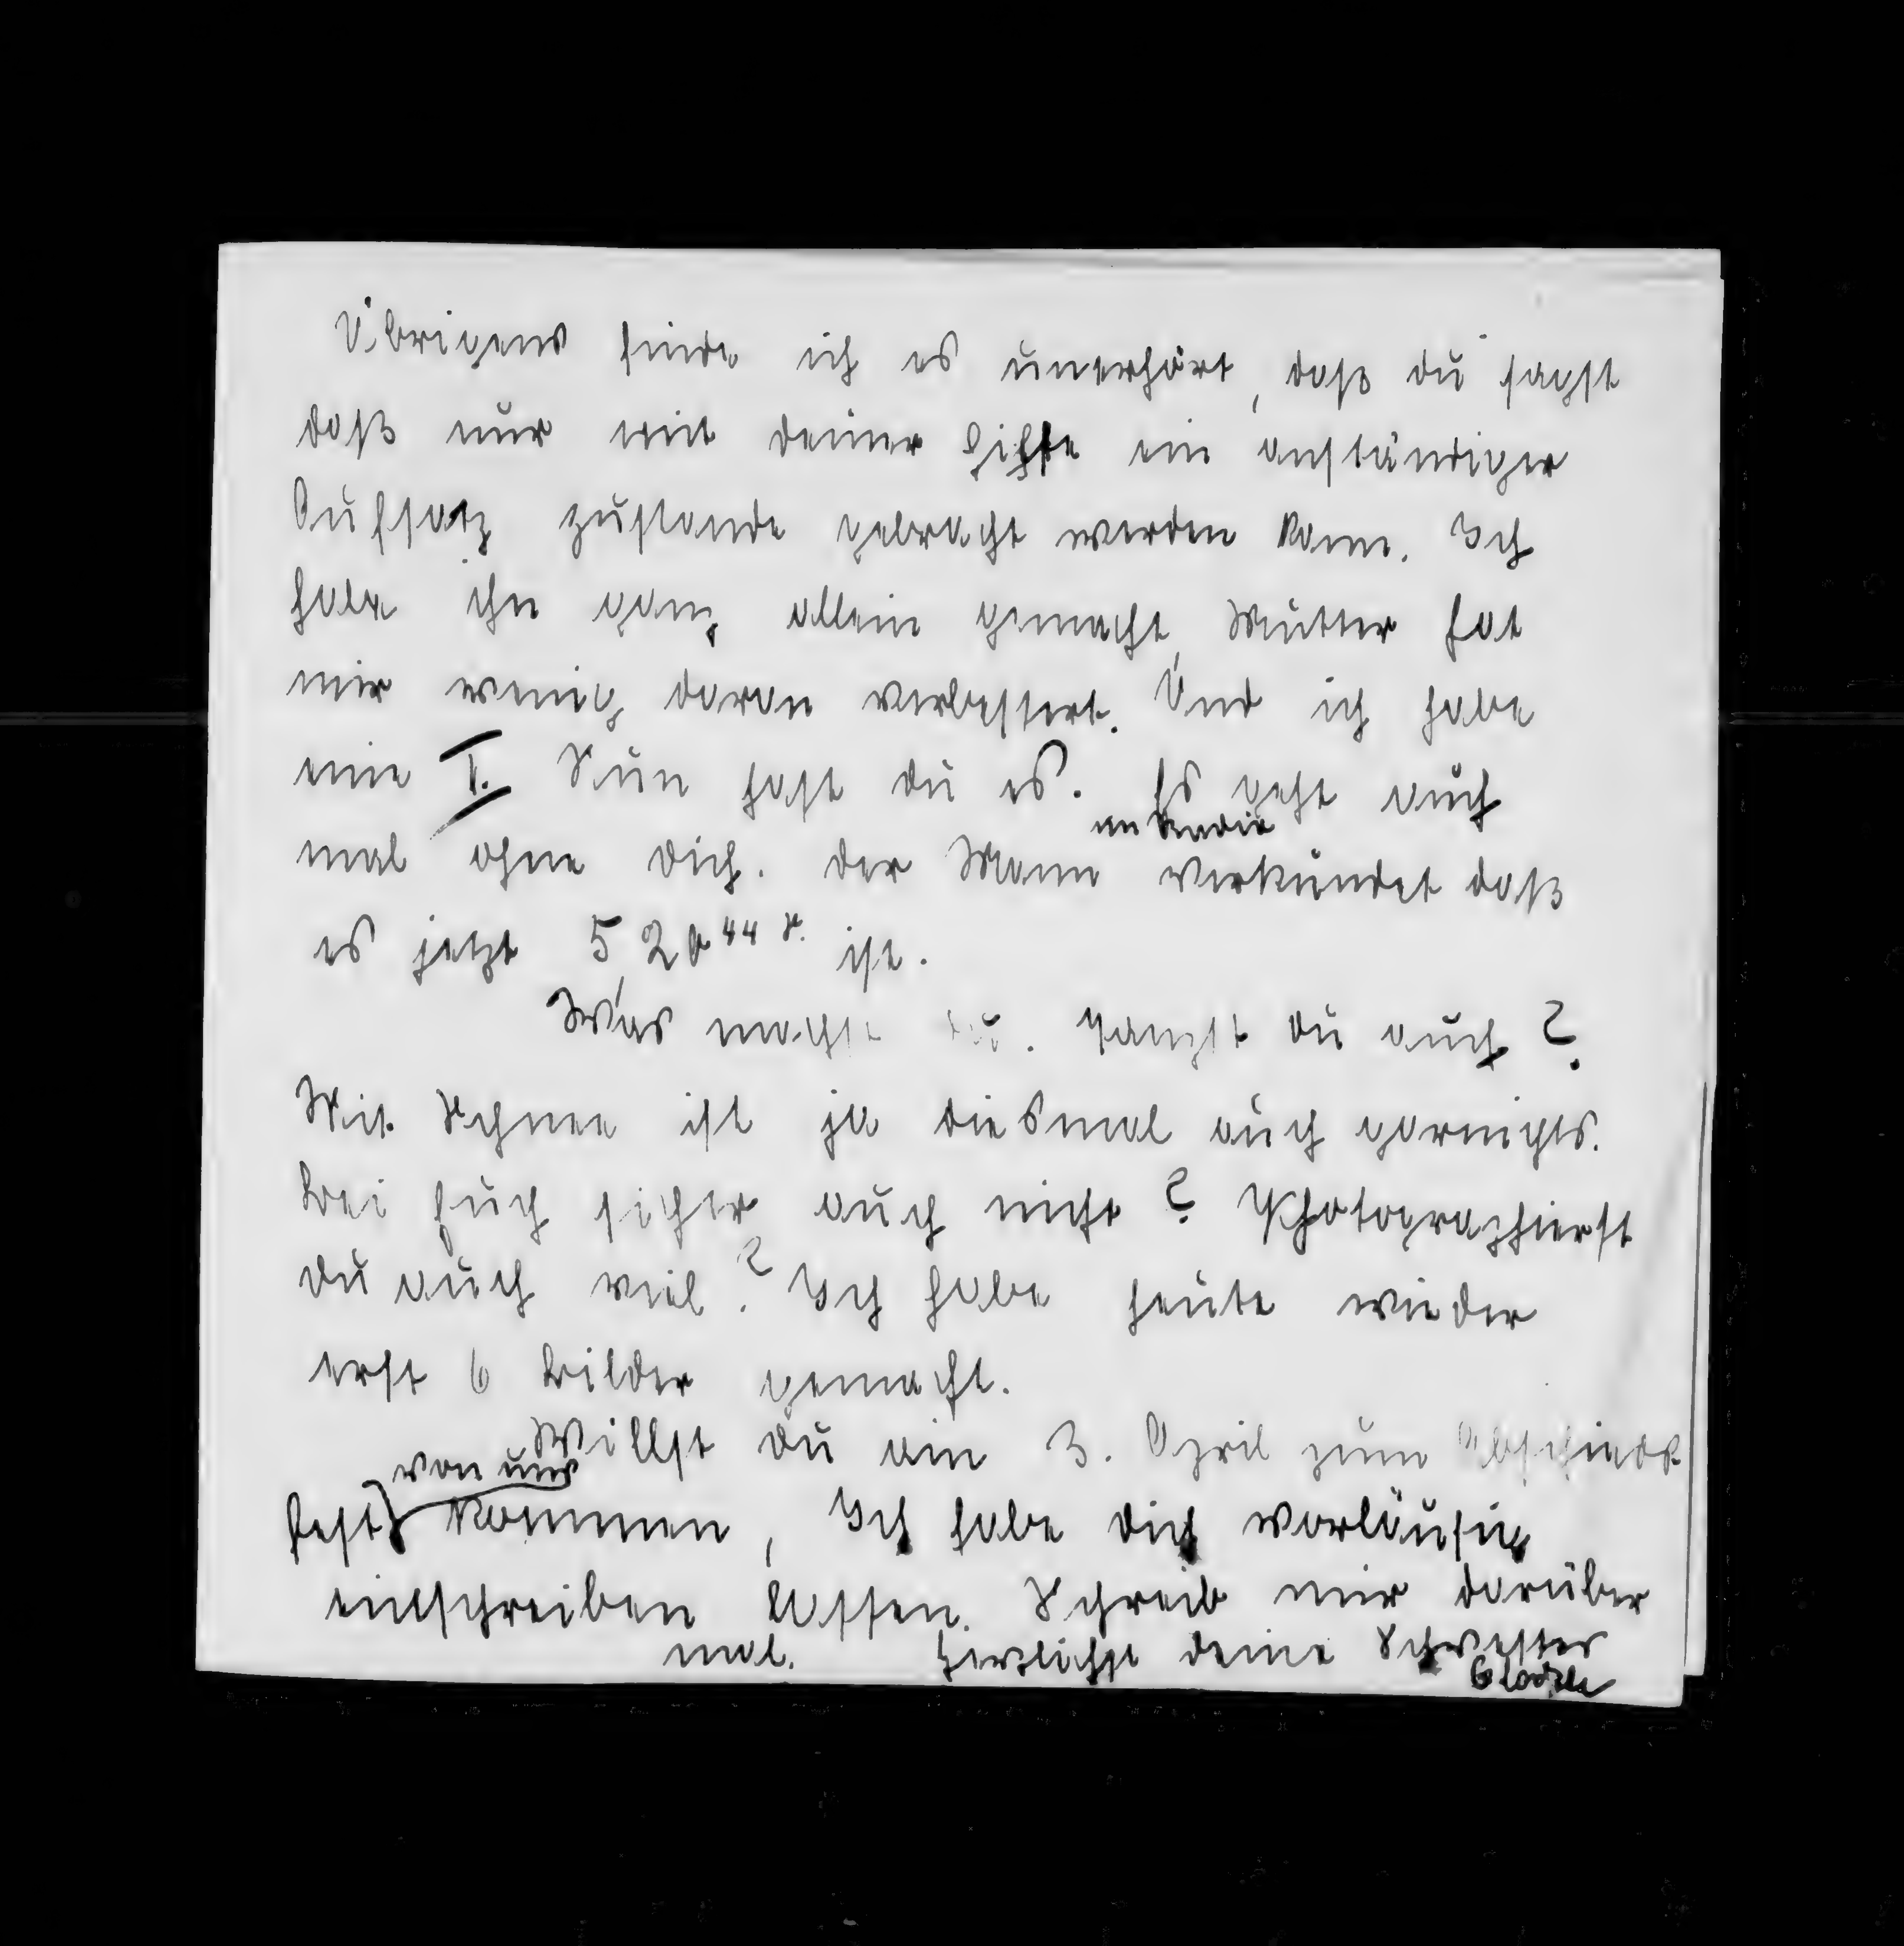 Übrigens finde ich es unerhört, daß du sagst
daß nur mit deiner Hilfe ein anständiger
Aufsatz zustande gebracht werden kann. Ich
habe ihn ganz allein gemacht, Mutter hat
mir wenig daran verbessert. Und ich habe
eine I. Nun hast du es. Es geht auch
mal ohne dich. der Mann im Radio verkündet daß
es jetzt 5,20 44 s. ist.
Was machst du. Tanzst du auch?
Mit Schnee ist ja diesmal auch garnichts.
bei Euch sicher auch nicht? Photographierst
du auch viel? Ich habe heute wieder
erst 6 bilder gemacht.
Willst du am 3. April zum Abschieds
fest von uns kommen, Ich habe dich vorläufig
einschreiben lassen. Schreib mir darüber
mal. Herzlichst deine Schwester